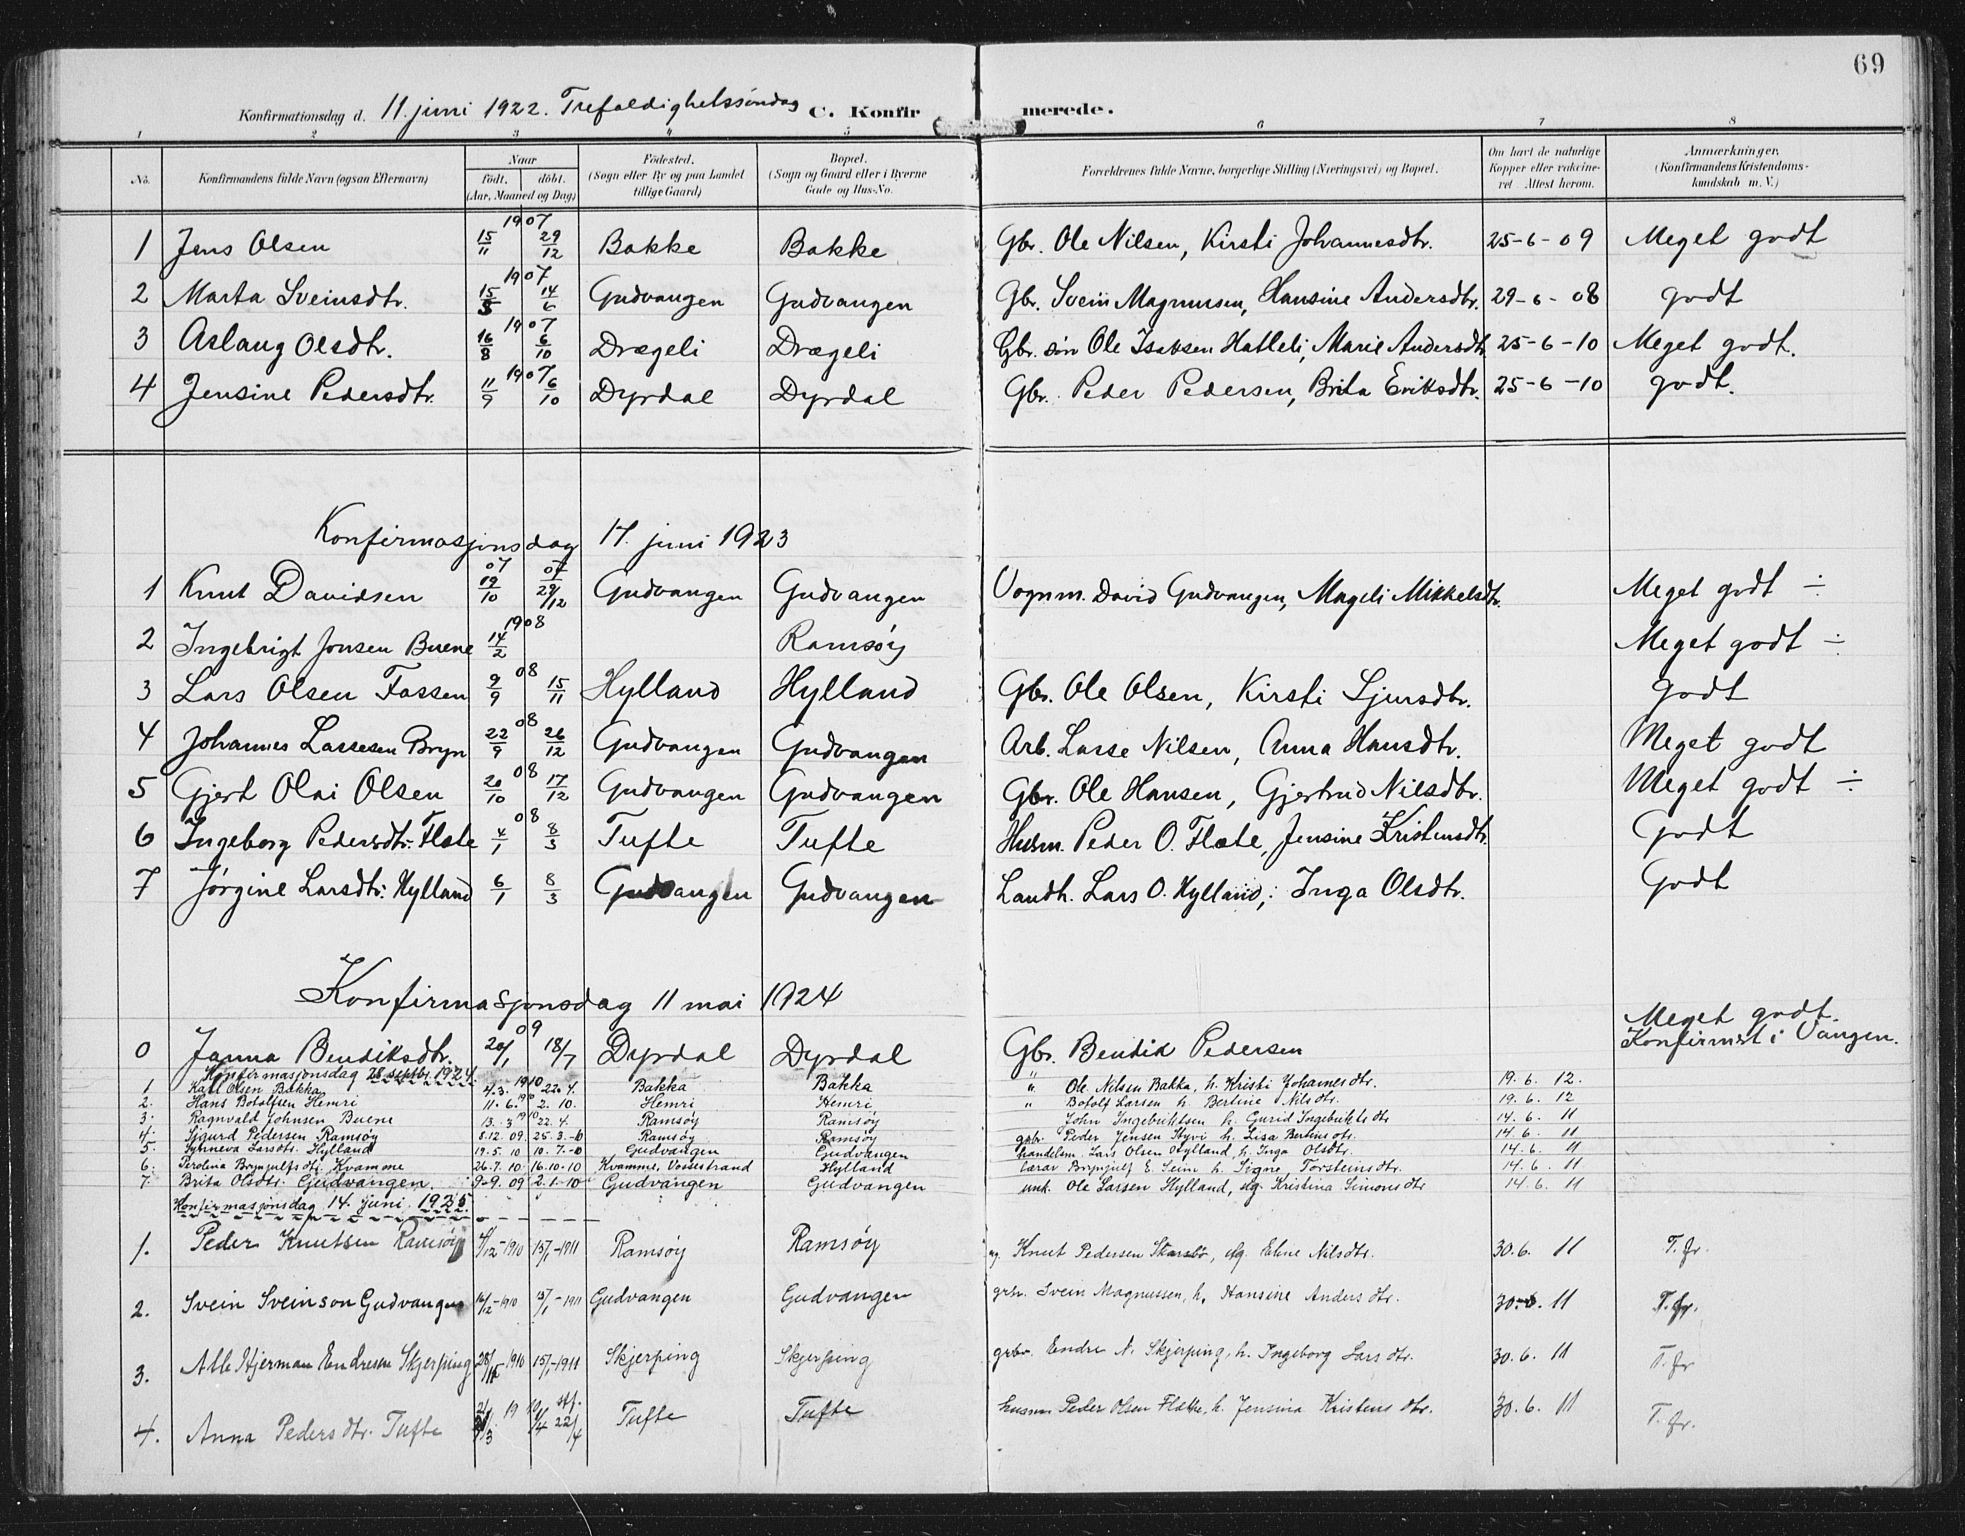 69
Konfirmationsdag d. 11. juni 1922. Trefoldighetssöndag C. Konfirmerede.
1 2 3 4 5 6 7 8
No. Konfirmandens fulde Navn (ogsaa Efternavn) Naar födt. döbt. (Aar, Maaned og Dag) Födested. (Sogn eller By og paa Landet tillige Gaard) Bopæl. (Sogn og Gaard eller i Byerne Gade og Hus-No. Forældrenes fulde Navne, borgerlige Stilling (Næringsvei) og Bopæl. Om havt de naturlige Kopper eller vakcineret. Attest herom. Anmærkninger. (Konfirmandens Kristendomskundskab m. V.)
1 Jens Olsen 1907 15/11 29/12 Bakke Bakke Gbr. Ole Nilsen, Kirsti Johannesdtr. 25-6-09 Meget godt
2 Marta Sveinsdtr. 1907 15/5 14/6 Gudvangen Gudvangen Gbr. Svein Magnussen, Hansine Andersdtr. 29-6-08 godt
3 Aslaug Olsdtr. 1907 16/8 6/10 Drægeli Drægeli Gbr. søn Ole Isaksen Hatleli, Marie Andersdtr 25-6-10 Meget godt.
4 Jensine Pedersdtr. 1907 11/9 6/10 Dyrdal Dyrdal Gbr. Peder Pedersen, Brita Eriksdtr. 25-6-10 godt.
Konfirmasjonsdag 17. juni 1923
1 Knut Davidsen 07 19/10 07 29/12 Gudvangen Gudvangen Vognm. David Gudvangen, Mageli Mikkelsdtr. Meget godt ÷
2 Ingebrigt Jonsen Buene 1908 14/2 Ramsöy Meget godt ÷
3 Lars Olsen Fossen 08 9/9 15/11 Hylland Hylland Gbr. Ole Olsen, Kirsti Sjursdtr. godt
4 Johannes Lassesen Bryn 08 22/9 26/12 Gudvangen Gudvangen Arb. Lasse Nilsen, Anna Hansdtr. Meget godt
5 Gjert Olai Olsen 08 20/10 17/12 Gudvangen Gudvangen Gbr. Ole Hansen, Gjertrud Nilsdtr. Meget godt ÷
6 Ingeborg Pedersdtr. Flate 08 4/1 8/3 Tufte Tufte Husm. Peder O. Flate, Jensine Kristensdtr. Godt
7 Jørgine Larsdtr: Hylland 6/1 8/3 Gudvangen Gudvangen Landh. Lars O. Hylland, Inga Olsdtr. Godt
Konfirmasjonsdag 11 mai 1924
0 Janna Bendiksdtr. 09 20/1 18/7 Dyrdal Dyrdal Gbr. Bendik Pedersen Meget godt. Konfirmert i Vangen.
Konfirmasjonsdag 28 septbr. 1924.
1. Karl Olsen Bakka 4.3. 1910 22.4. Bakka Bakka " Ole Nilsen Bakka, h. Kristi Johannesdtr. 19.6.12.
2. Hans Botolfsen Hemri 11.6. 1910 2.10. Hemri Hemri " Botolf Larsen h. Bertine Nilsdtr. 19.6.12
3. Ragnvald Johnsen Buene 13.3 1910 22.4. Ramsöy Ramsöy John Ingebriktsen h. Gurid Ingebriktsdtr 14.6.11
4. Sigurd Pedersen Ramsöy 8.12.09. 25.3.-10 Ramsöy Ramsöy grbr. Peder Jensen h. Lisa Bertinsdtr. 14.6.11
5. Synneva Larsdtr. Hylland 19.5.10 10.7.-10 Gudvangen Gudvangen handelsm. Lars Olsen Hylland, h. Inga Olsdtr. 14.6.11
6. Perolina Brynjulfsdtr. Kvamme 26.7.10. 16.10.10 Kvamme, Vossestrand Hylland lærar Brynjulf E. Seim h. Signe Torsteinsdtr. 14.6.11
7. Brita Olsdtr. Gudvangen. 9-9.09 2.1-10 Gudvangen Gudvangen unk. Ole Larsen Hylland, og Kristina Simonsdtr 14.6.11
Konfirmasjonsdag 14. juni 1925.
1. Peder Knutsen Ramsöy /12-1910 15/1-1911 Ramsöy Ramsöy Knut Pedersen Skarsbø, Eline Nilsdtr. 30.6.11 T. fr.
2. Svein Sveinson Gudvangen 16/12-1910 15/1-1911 Gudvangen Gudvangen grbr. Svein Magnussen, h. Hansine Andersdtr. 30.6.11 T. fr.
3. Atle Hjerman Endresen Skjerping 28/12-1910 15/1-1911 Skjerping Skjerping grbr. Endre N. Skjerping, h. Ingeborg Larsdtr. 30.6.11 T. fr
4. Anna Pedersdtr. Tufte 19 22/4 Tufte Tufte husm Peder Olsen Flate, h. Jensina Kristensdtr. 30.6.11 T. fr.